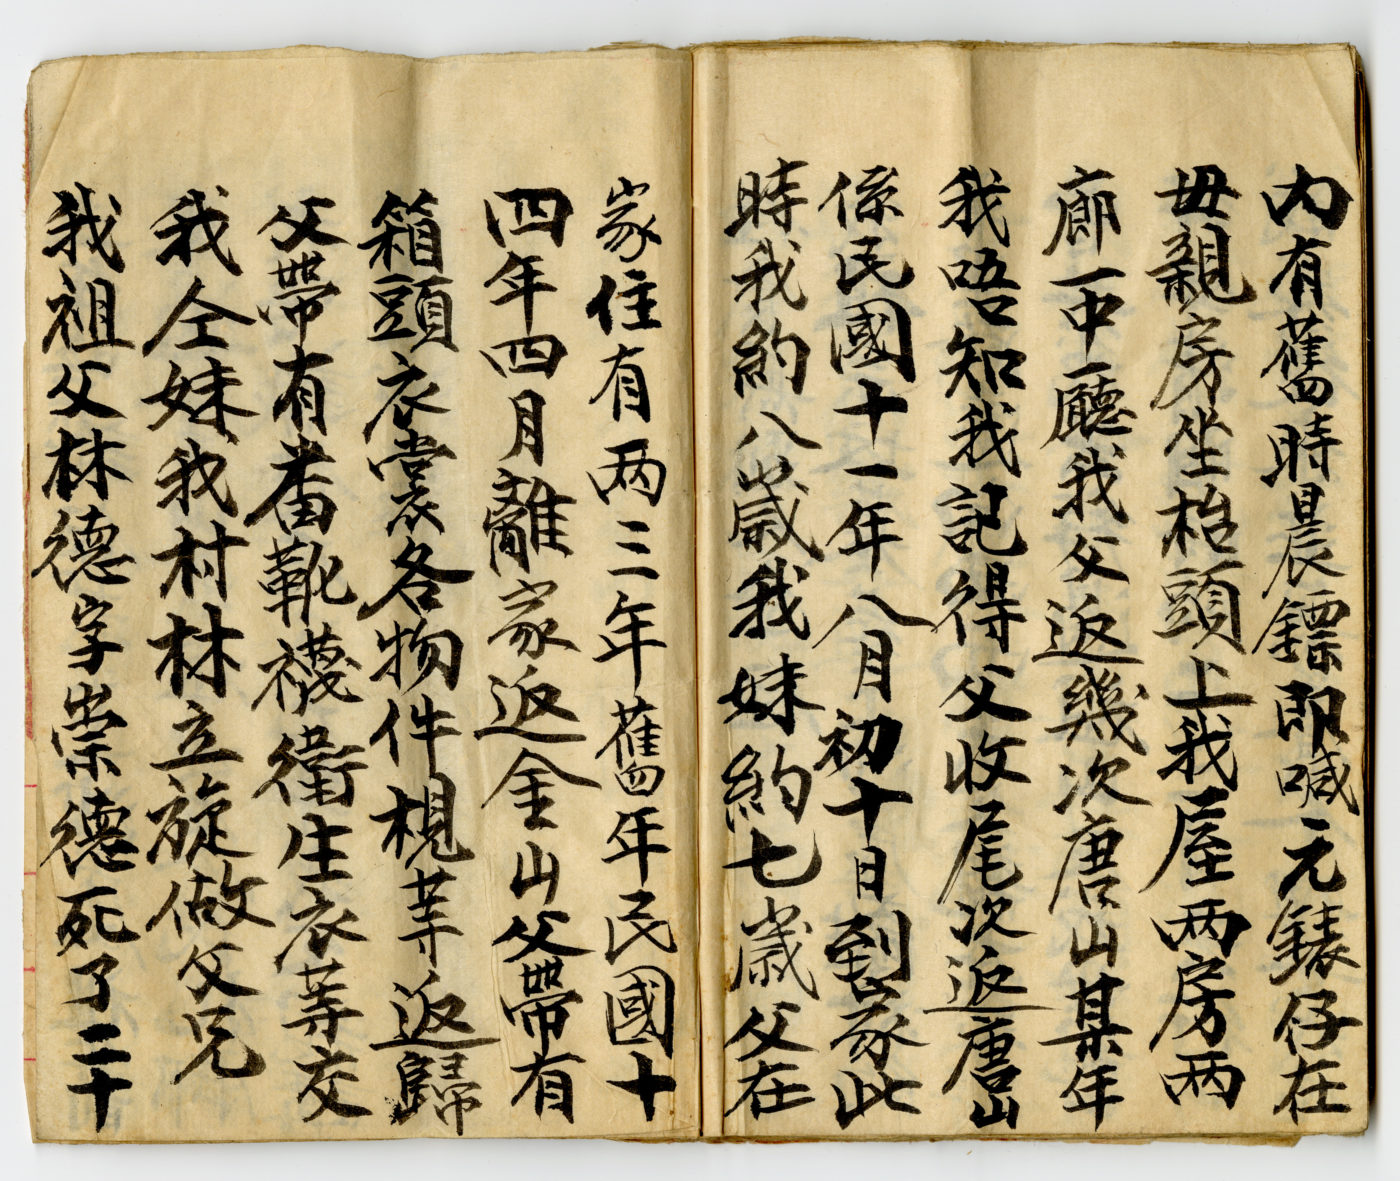 内有舊時晨鏢即喊元錶仔在
毋親房坐枱頭上我屋两房两
廊一中一廳我父返幾次唐山某年
我唔知我記得父收尾次返唐山
係民國十一年八月初十日到家此
時我約八歲我妹約七歲父在
家住有两三年舊年民國十
四年四月離家返金山父帶有
箱頭衣裳各物件梘等返歸
父帶有番靴襪衛生衣等交
我仝妹我村林立旋做父兄
我祖父林德字崇德死了二十